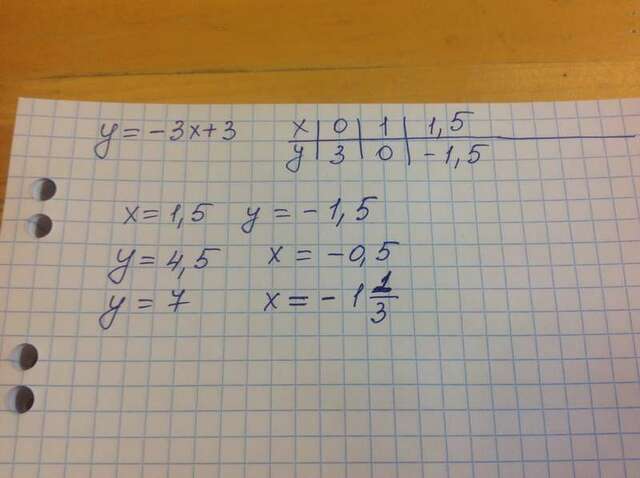 y = -3x+3
x | 0 | 1 | 1,5
y | 3 | 0 | -1,5
x = 1,5 y = -1,5
y = 4,5 x = -0,5
y = 7 x = -1 1/3